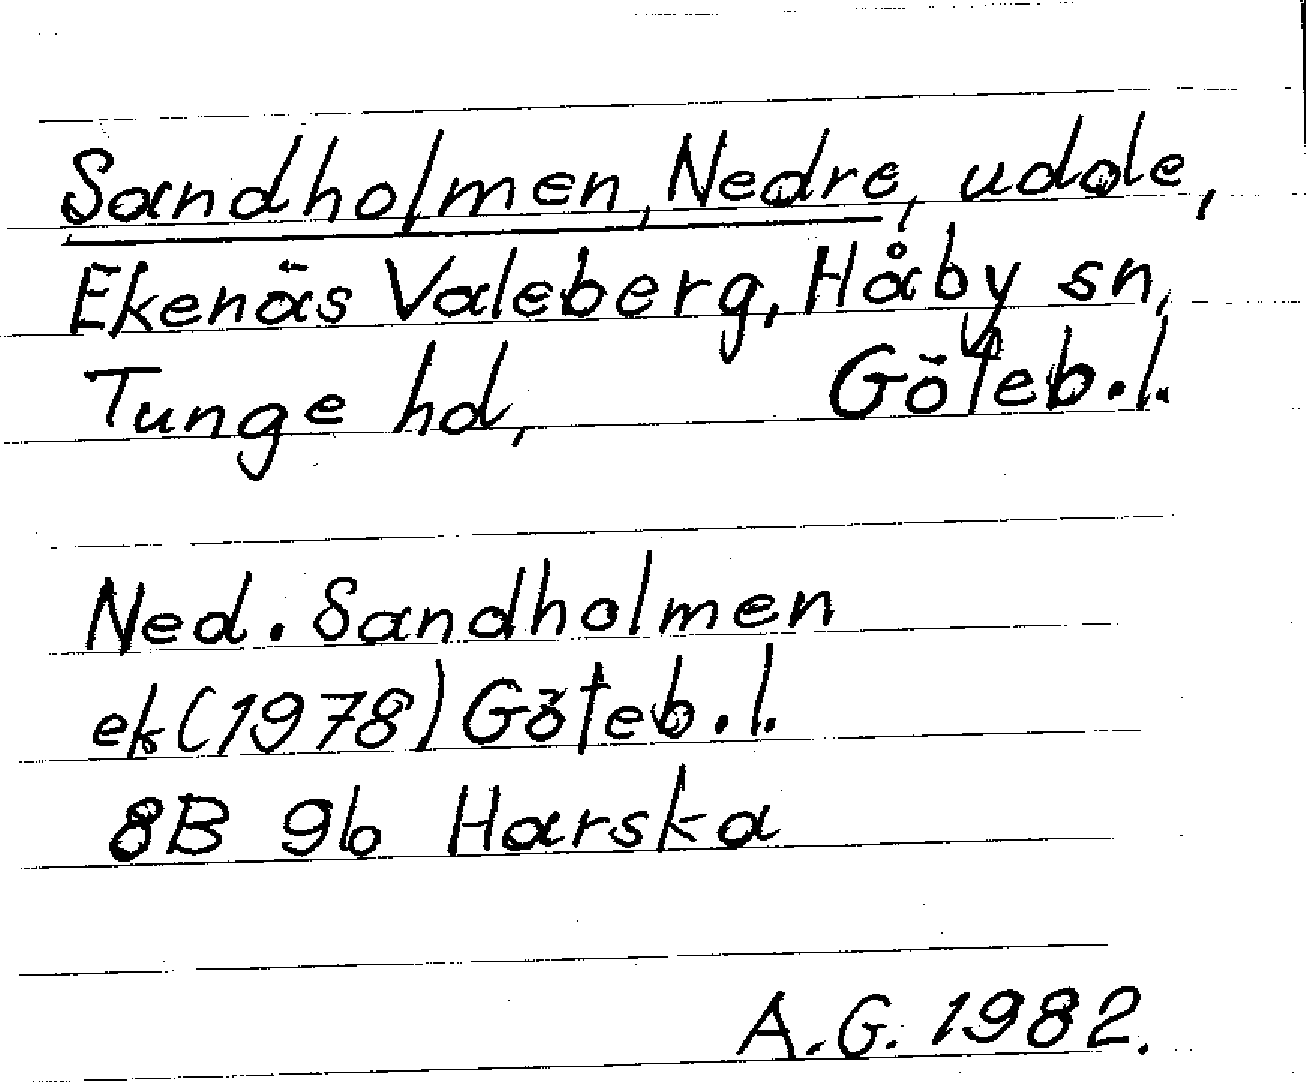 Sandholmen, Nedre, udde,
Ekenäs Valeberg, Håby sn,
Tunge hd, Göteb.l.
Ned. Sandholmen
ek (1978) Göteb.l.
8B 9b Harska
A.G. 1982.